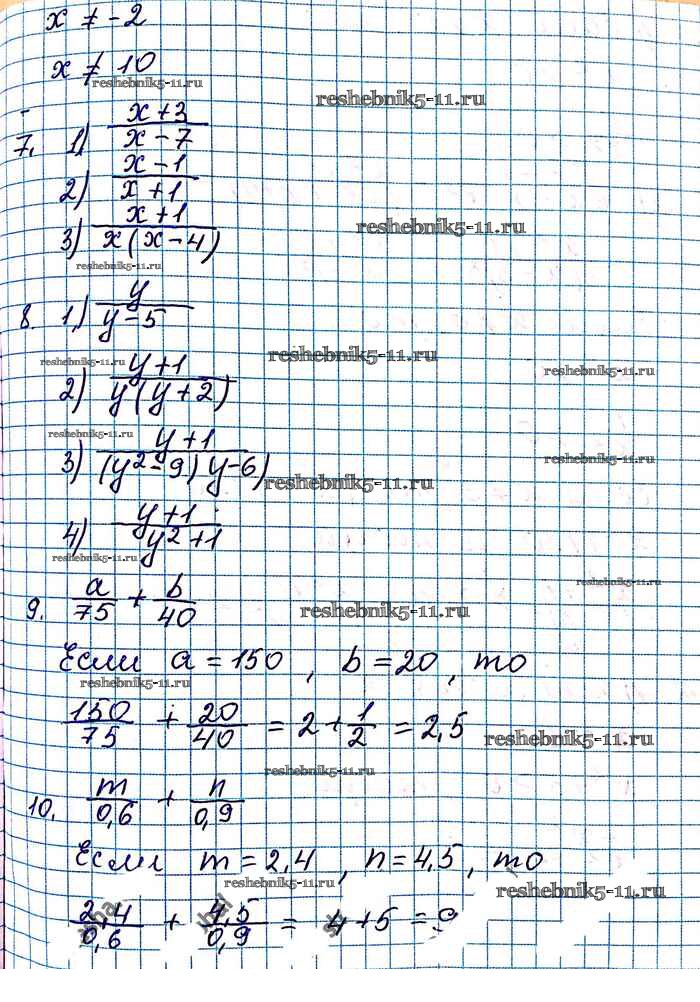 x ≠ -2
x ≠ 10
reshebnik5-11.ru
reshebnik5-11.ru
7. 1) (x+3)/(x-7)
2) (x-1)/(x+1)
3) (x+1)/(x(x-4))
reshebnik5-11.ru
reshebnik5-11.ru
8. 1) y/(y-5)
reshebnik5-11.ru
reshebnik5-11.ru
reshebnik5-11.ru
2) (y+1)/(y(y+2))
reshebnik5-11.ru
3) (y+1)/((y²-9)y-6)
reshebnik5-11.ru
reshebnik5-11.ru
4) (y+1)/(y²+1)
reshebnik5-11.ru
reshebnik5-11.ru
9. a/75 + b/40
reshebnik5-11.ru
Если a = 150, b = 20, то
reshebnik5-11.ru
150/75 + 20/40 = 2 + 1/2 = 2,5
reshebnik5-11.ru
reshebnik5-11.ru
10. m/0,6 + n/0,9
Если m = 2,4, n = 4,5, то
reshebnik5-11.ru
reshebnik5-11.ru
2,4/0,6 + 4,5/0,9 = 4+5 = 9